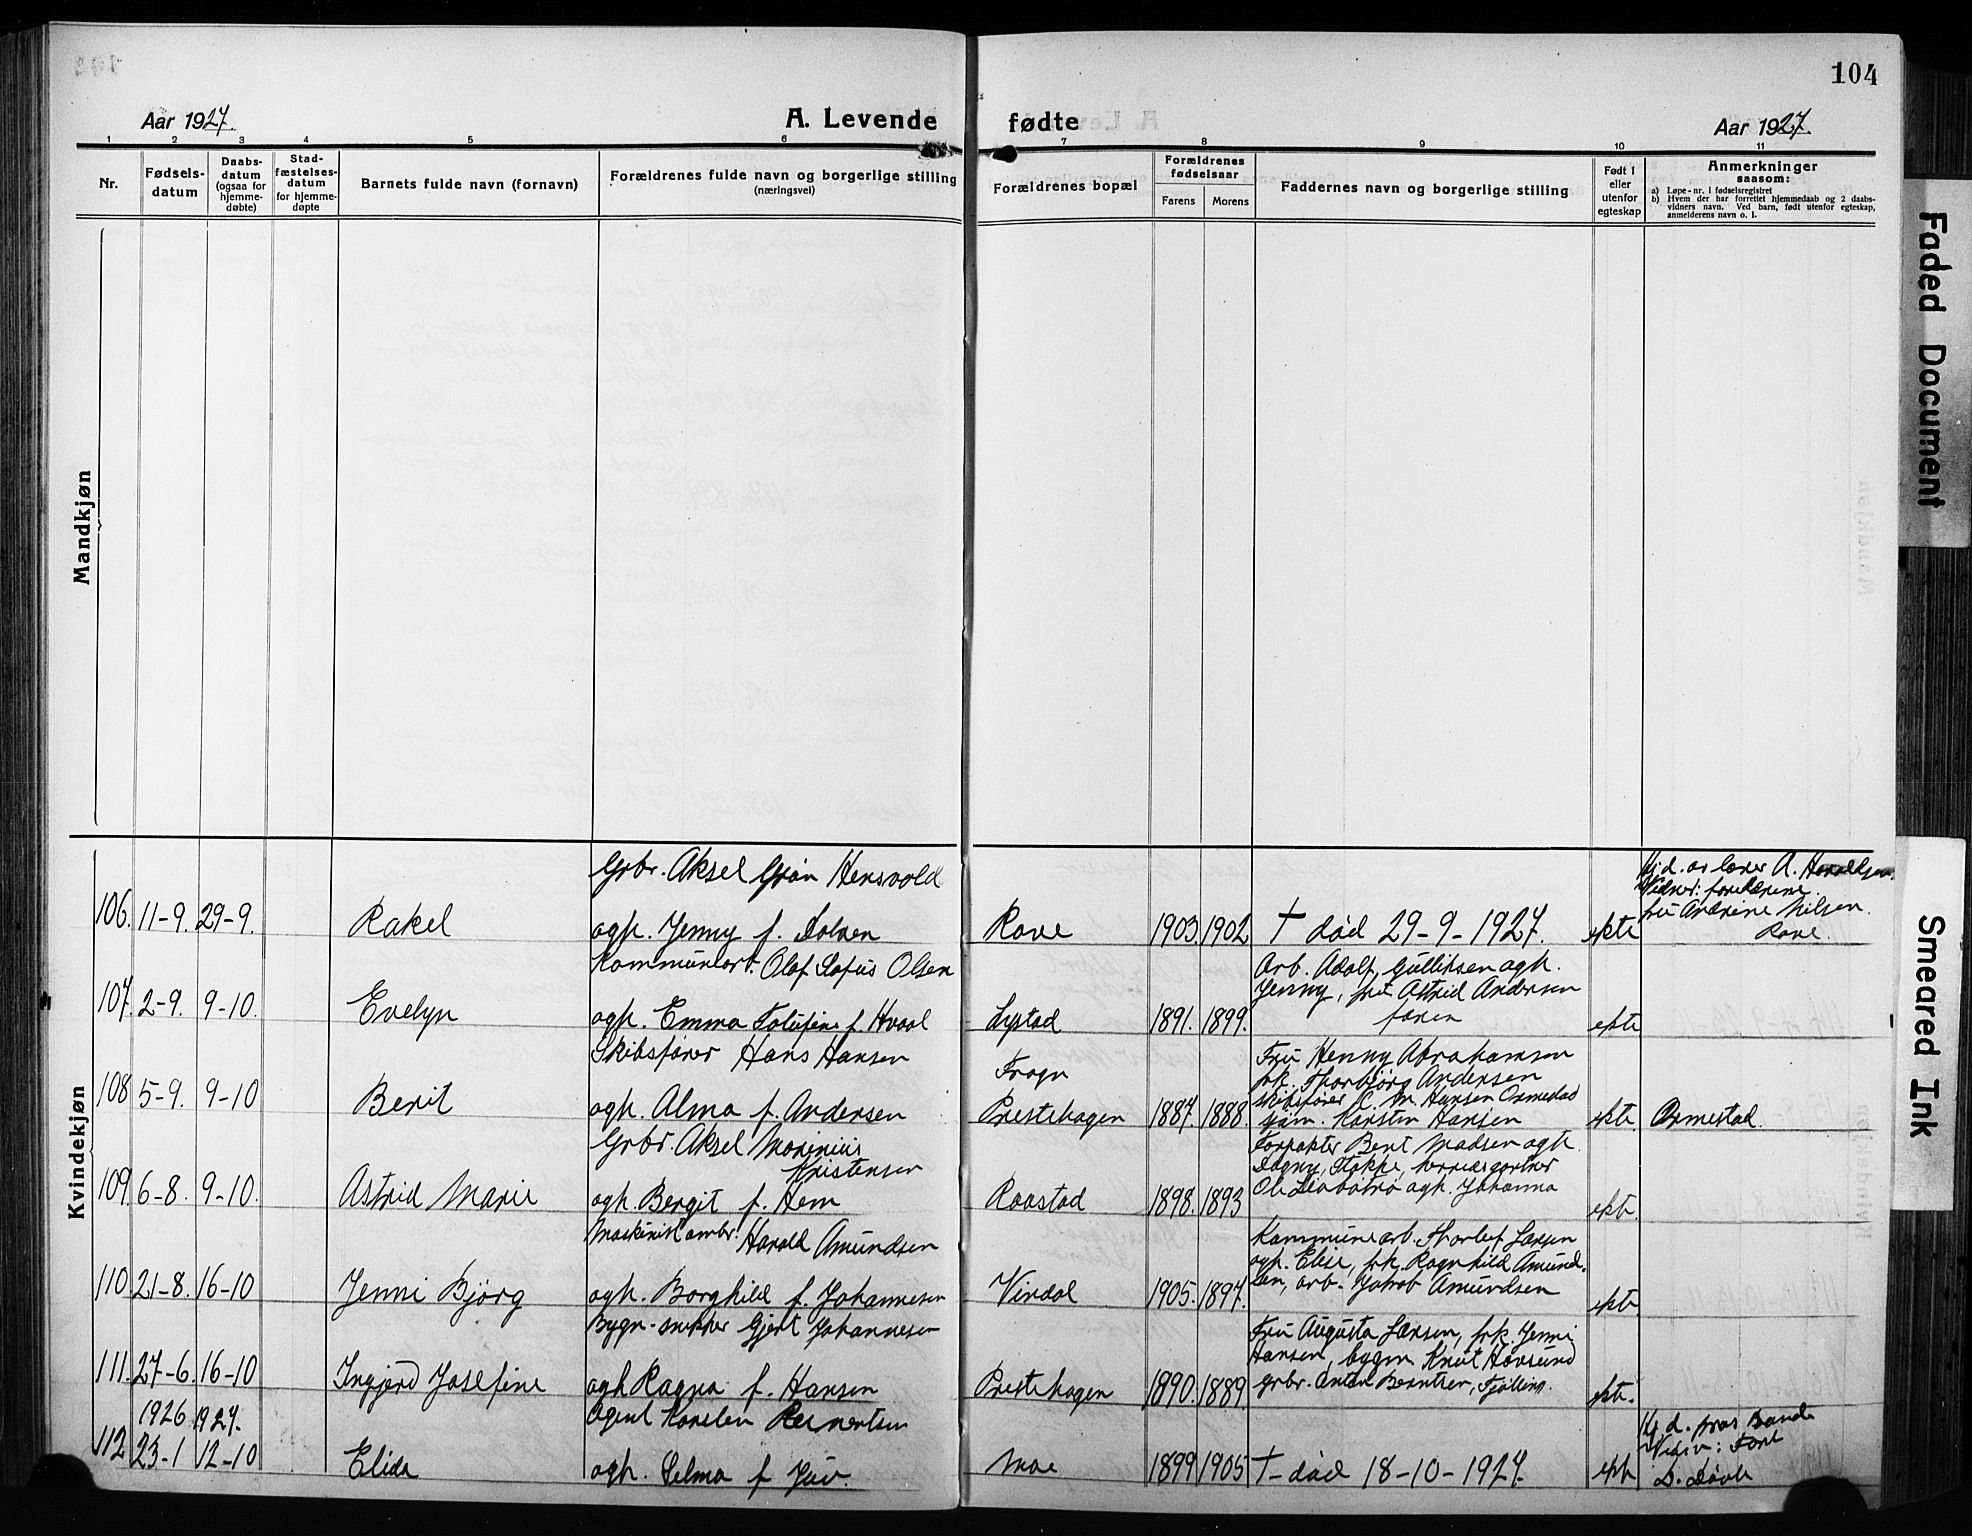 104
Aar 1927.
A. Levende
fødte
Aar 1927.
1 2 3 4 5 6 7 8 9 10 11
Nr.
Fødsels-
datum
Daabs-
datum
(ogsaa for
hjemme-
døbte)
Stad-
fæstelses-
datum
for hjemme-
døpte
Barnets fulde navn (fornavn)
Forældrenes fulde navn og borgerlige stilling
(næringsvei)
Forældrenes bopæl
Forældrenes
fødselsaar
Farens
Morens
Faddernes navn og borgerlige stilling
Født i
eller
utenfor
egteskap
Anmerkninger
saasom:
a) Løpe-nr. i fødselsregistret
b) Hvem der har forrettet hjemmedaab og 2 daabs-
vidners navn. Ved barn, født utenfor egteskap,
anmelderens navn o. l.
Mandkjøn
Kvindekjøn
106. 11-9. 29-9.
Rakel
Grbr. Aksel Grøn Hensvold
ogh. Jenny f. Solven
Rove
1903. 1902
† død 29-9-1927.
ekte
Hj.d. av lærer A. Haraldsen.
Vidner: forældrene.
fru Andrine Nilsen.
Rove.
107. 2-9. 9-10.
Evelyn
Kommunearb. Olaf Sofus Olsen
ogh. Emma Tolufine f. Hvaal
Lystad
1891. 1899.
Arb. Adolf Gullitsen ogh.
Jenny, fru Astrid Andersen
faren
ekte
108 5-9. 9-10
Berit
Skibsfører Hans Hansen
ogh. Alma f. Andersen
Frogn
Prestehagen
1887. 1888.
Fru Henny Abrahamsen
frk. Thorbjørg Andersen
skibsfører C. M. Hansen Ormestad
Karsten Hansen
ekte.
Ormestad.
109. 6-8. 9-10.
Astrid Marie
Grbr. Aksel Marinius
Kristensen
ogh. Bergit f. Hem
Raastad
1898. 1893
Forpakter Bent Madsen ogh.
Dagny, Stokke, herredsgartner
Ole Liabøtrø ogh. Johanna
ekte.
110 21-8. 16-10
Jenni Bjørg
Maskinist ombr. Harald Amundsen
ogh. Borghild f. Johannesen
Virdal
1905. 1897.
Kommunearb. Thorleif Larsen
ogh. Elise, frk. Ragnhild Amund-
sen, arb. Jakob Amundsen
ekte
111. 27-6. 16-10
Ingjerd Josefine
Bygn-snekker Gjert Johannesen
ogh Ragna f. Hansen
Prestehagen
1890. 1889.
Fru Augusta Larsen, frk. Jenni
Hansen, bygm Knut Hovsund
grbr. Anton Berntsen, Fjølling.
ekte.
112
1926 1927.
23-1 12-10
Elida
Agent Karelen Reinertsen
ogh. Selma f. Juv.
Moe
1899 1905
† død 18-10-1927.
ekte
Hj.d. pros. Sande
Vidn: Fare
D. Søvde
Faded Document
Smeared Ink